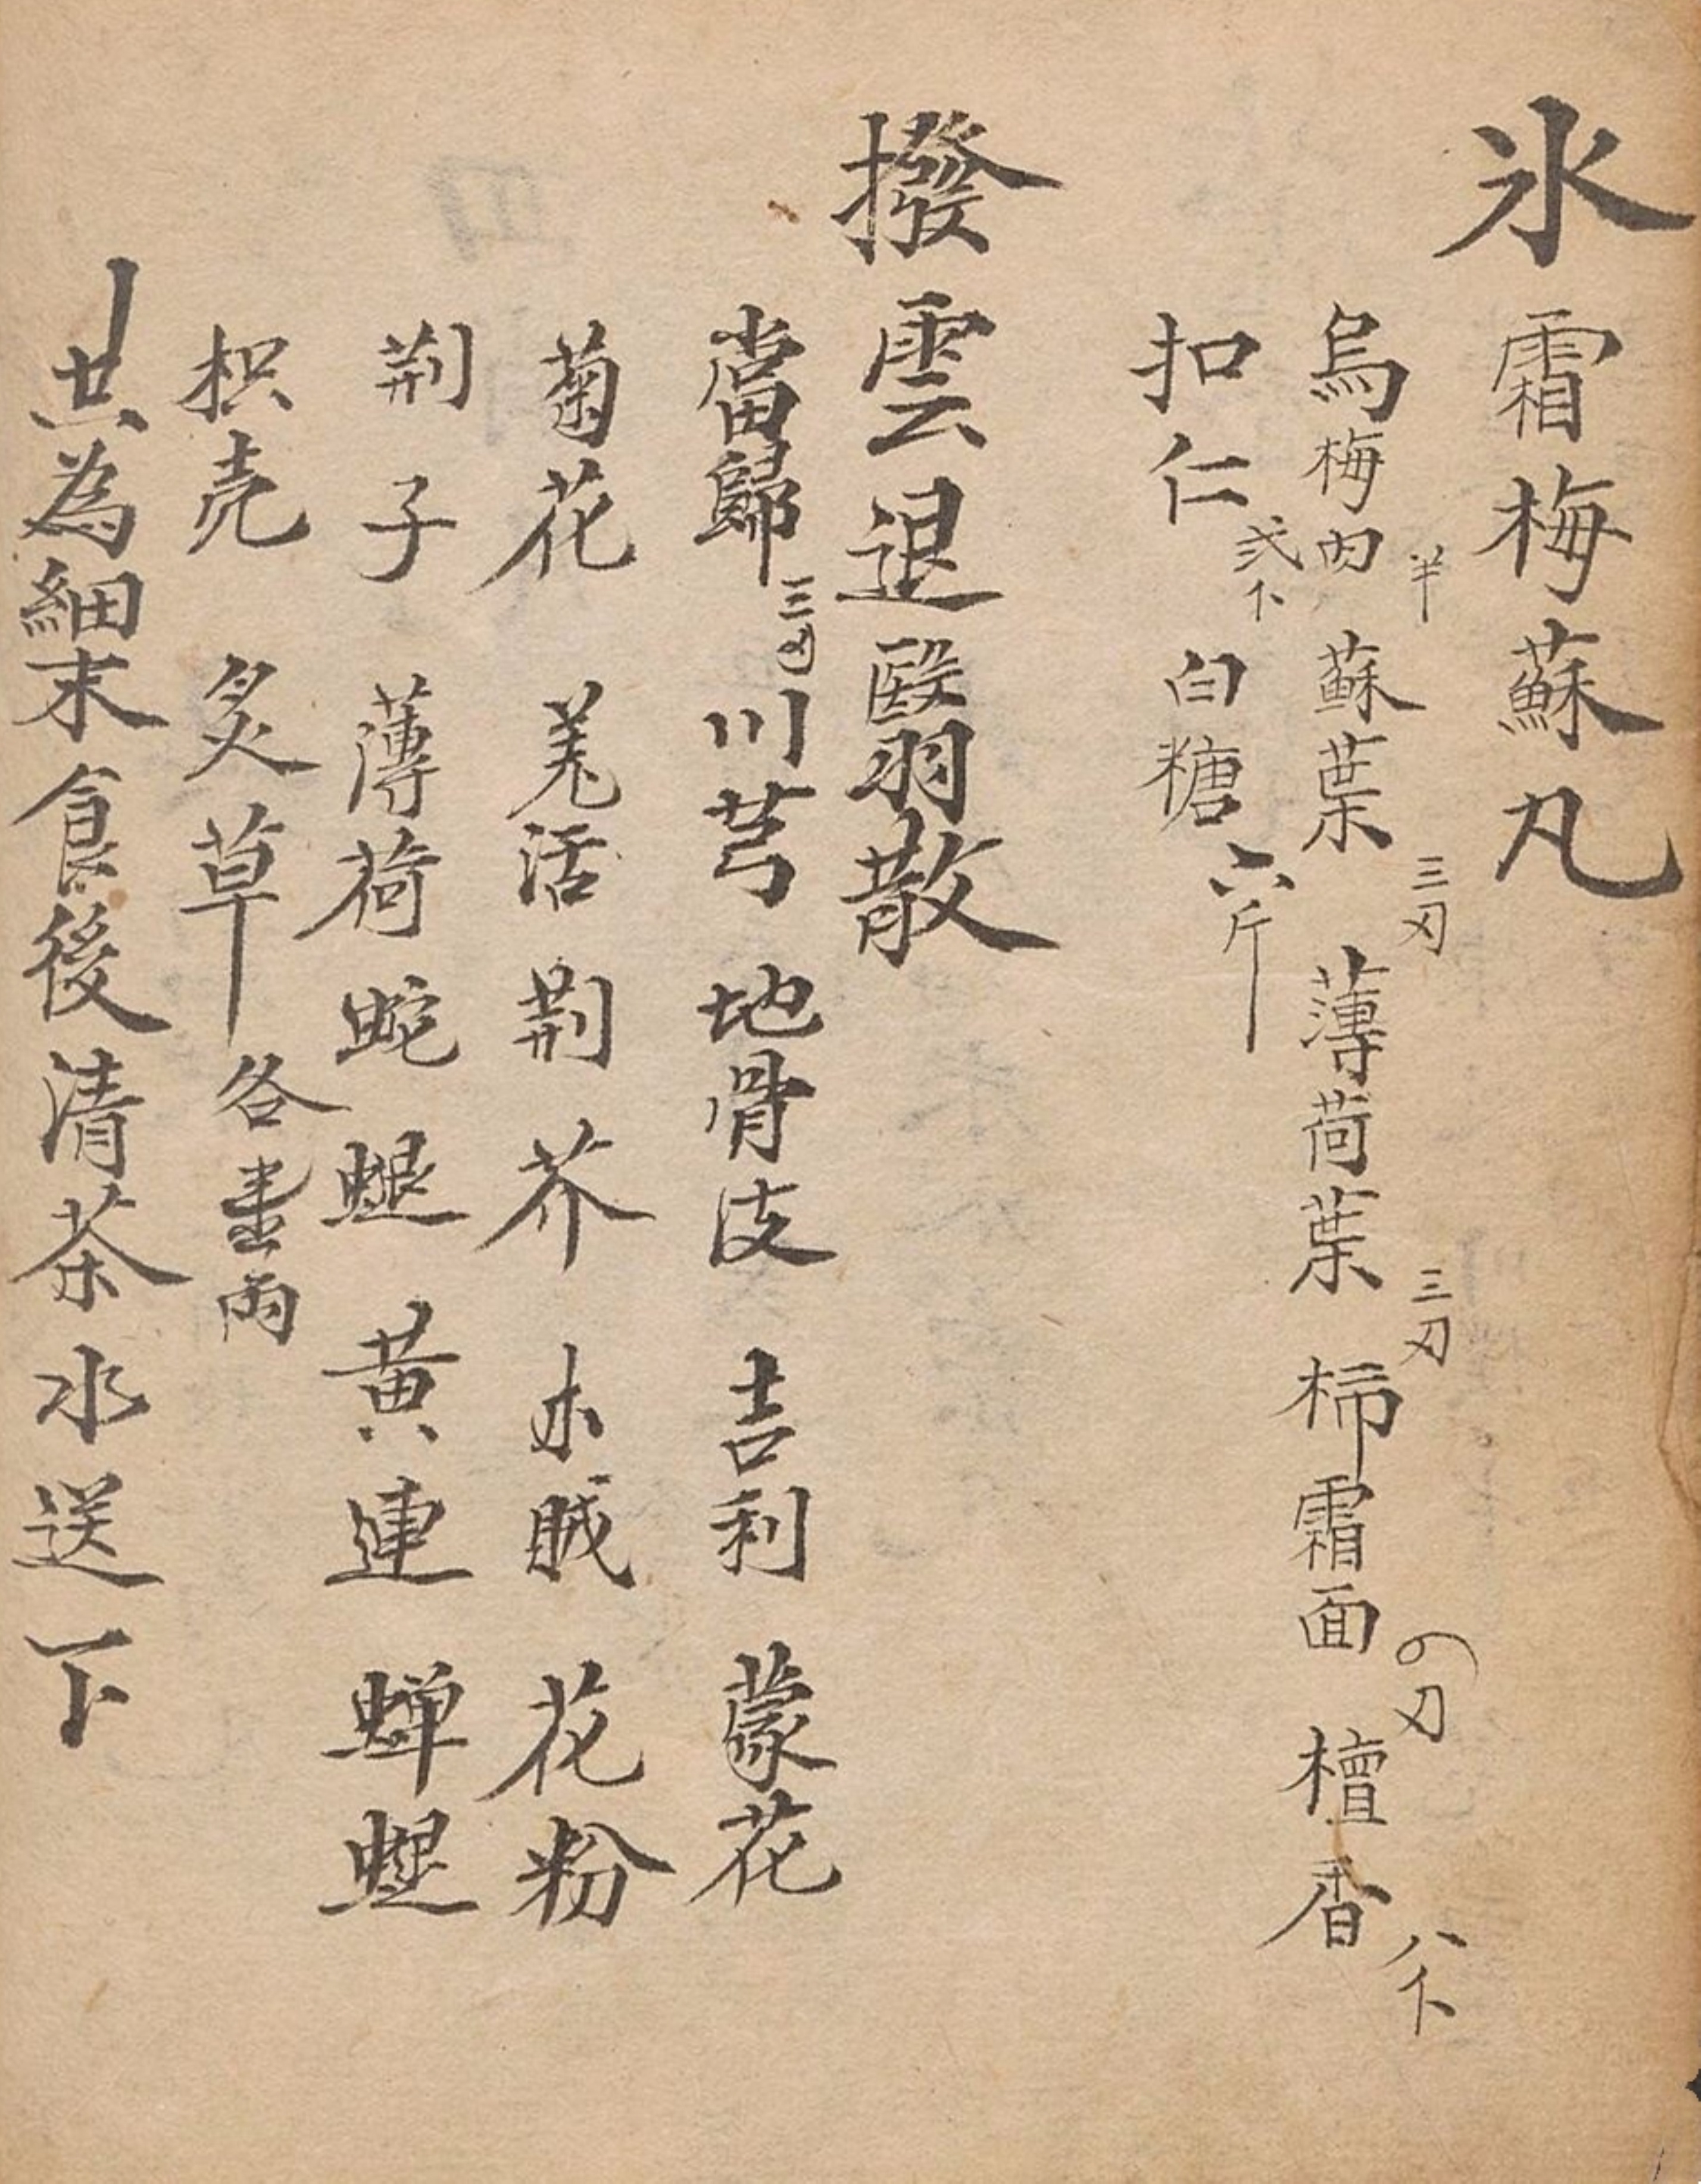 氷霜梅蘇凡
烏梅肉半蘇葉三刄薄荷葉三刄柿霜面檀香八
扣仁弍白糖六斤
撥雲退翳散
當歸三川芎地骨皮吉利蒙花
菊花羌活荆芥木賊花粉
荆子薄荷蛇蜕黄連蝉蜕
枳壳炙草各壹両
共為細末食後清茶水送下